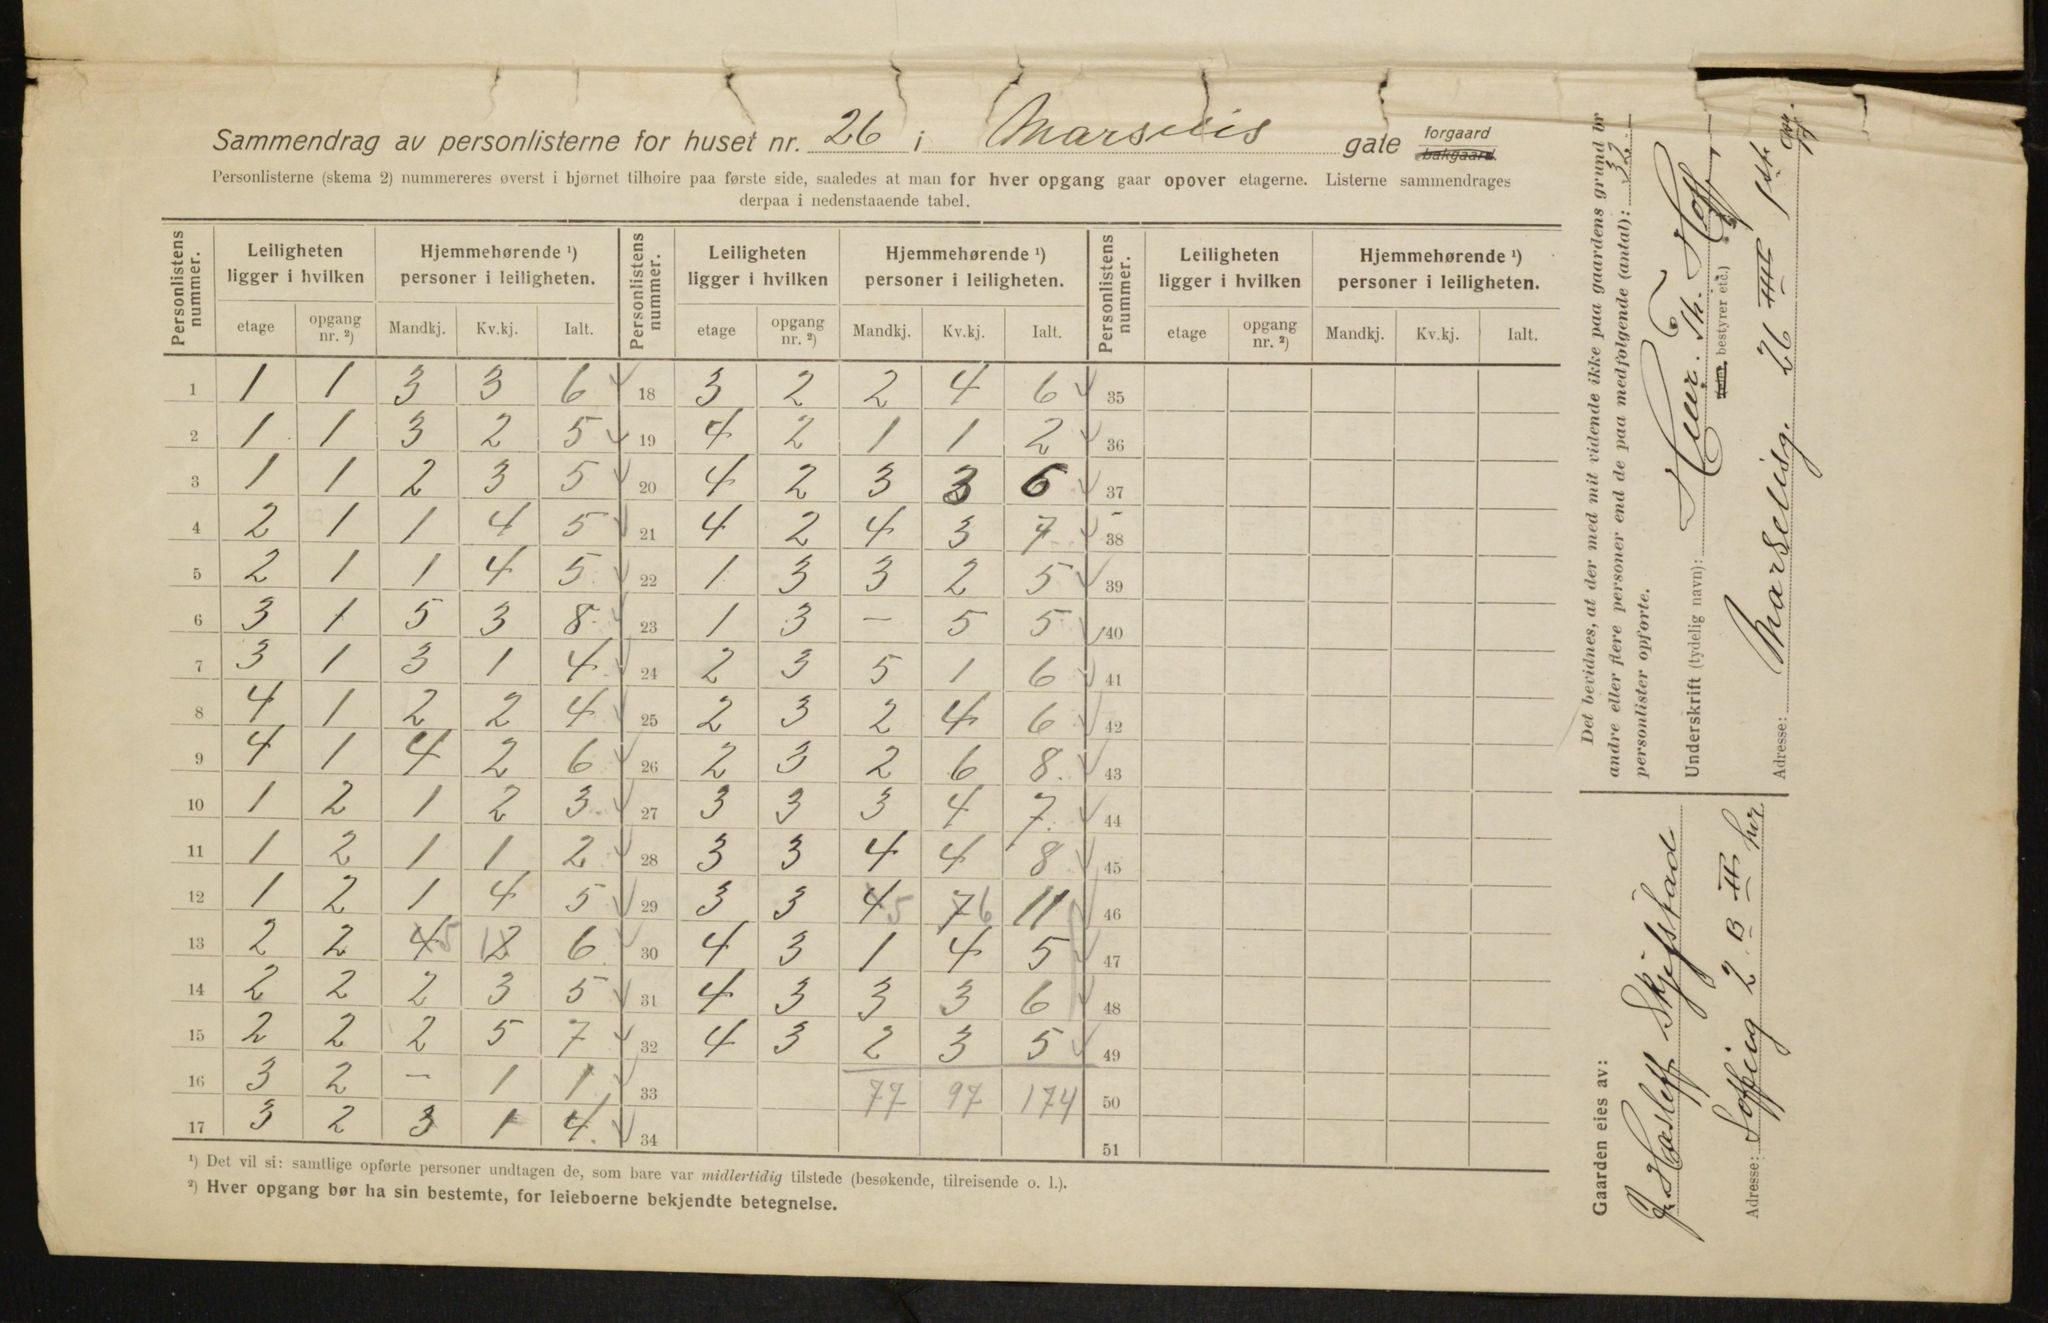 Sammendrag av personlisterne for huset nr. 26 i Marselis gate forgaard bakgaard.
Personlisterne (skema 2) nummereres øverst i hjørnet tilhøire paa første side, saaledes at man for hver opgang gaar opover etagerne. Listerne sammendrages
derpaa i nedenstaaende tabel.
Personlistens nummer. Leiligheten ligger i hvilken Hjemmehørende ¹) personer i leiligheten. Personlistens nummer. Leiligheten ligger i hvilken Hjemmehørende ¹) personer i leiligheten. Personlistens nummer. Leiligheten ligger i hvilken Hjemmehørende ¹) personer i leiligheten.
etage opgang nr. ²) Mandkj. Kv.kj. Ialt. etage opgang nr. ²) Mandkj. Kv.kj. Ialt. etage opgang nr. ²) Mandkj. Kv.kj. Ialt.
1 1 1 3 3 6 18 3 2 2 4 6 35
2 1 1 3 2 5 19 4 2 1 1 2 36
3 1 1 2 3 5 20 4 2 3 3 6 37
4 2 1 1 4 5 21 4 2 4 3 7 38
5 2 1 1 4 5 22 1 3 3 2 5 39
6 3 1 5 3 8 23 1 3 – 5 5 40
7 3 1 3 1 4 24 2 3 5 1 6 41
8 4 1 2 2 4 25 2 3 2 4 6 42
9 4 1 4 2 6 26 2 3 2 6 8 43
10 1 2 1 2 3 27 3 3 3 4 7 44
11 1 2 1 1 2 28 3 3 4 4 8 45
12 1 2 1 4 5 29 3 3 4 5 7 6 11 46
13 2 2 4 5 1 2 6 30 4 3 1 4 5 47
14 2 2 2 3 5 31 4 3 3 3 6 48
15 2 2 2 5 7 32 4 3 2 3 5 49
16 3 2 – 1 1 33 77 97 174 50
17 3 2 3 1 4 34 51
¹) Det vil si: samtlige opførte personer undtagen de, som bare var midlertidig tilstede (besøkende, tilreisende o. l.).
²) Hver opgang bør ha sin bestemte, for leieboerne bekjendte betegnelse.
Det bevidnes, at der med mit vidende ikke paa gaardens grund br
andre eller flere personer end de paa medfølgende (antal): 32
personlister opførte.
Underskrift (tydelig navn): Henr. Th. Hoff
bestyrer etc.)
Adresse: Marselisg. 26 III 1ste opg.
Gaarden eies av:
J. Hasleff Skjefstad
Adresse: Soffieg 2 B II her